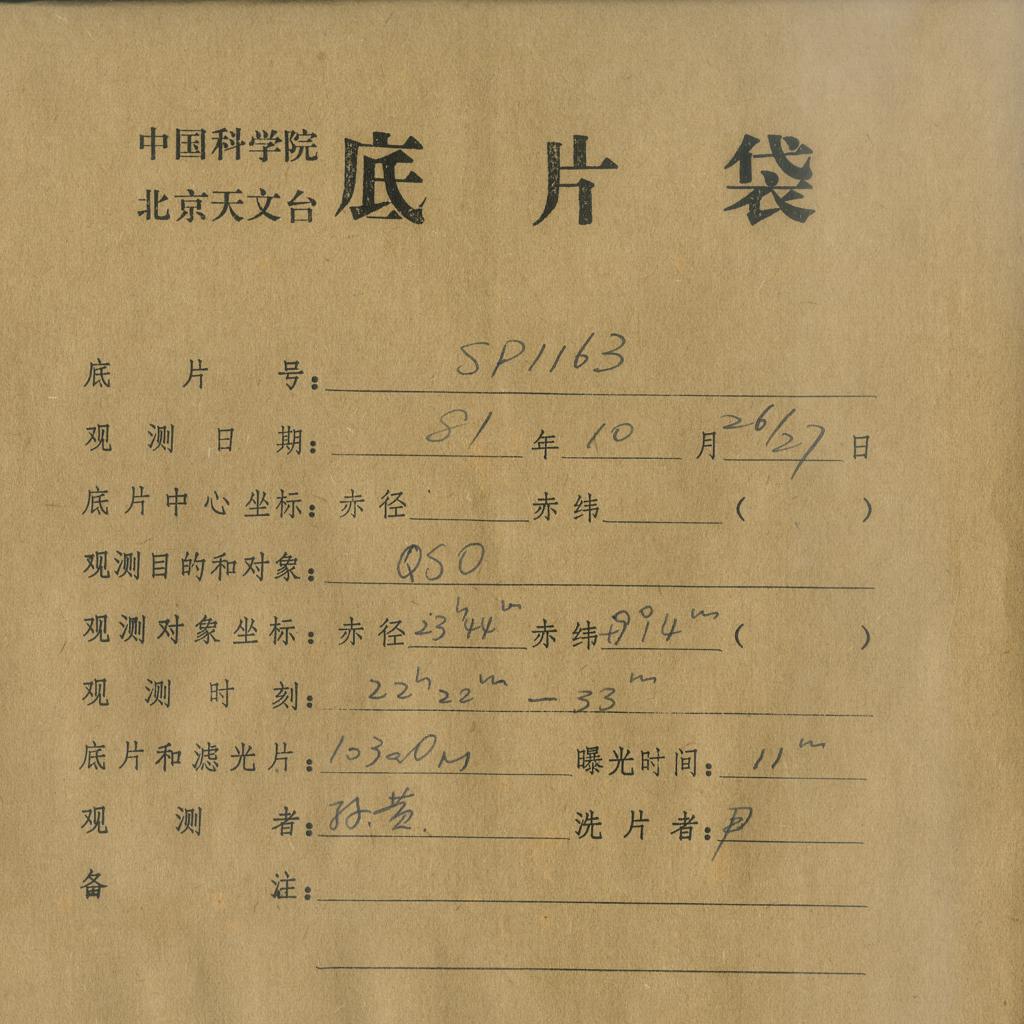 中国科学院
北京天文台
底片袋
底片号: SP1163
观测日期: 81年10月26/27日
底片中心坐标: 赤径 赤纬 ( )
观测目的和对象: QSO
观测对象坐标: 赤径 23h44m 赤纬 +9°14m ( )
观测时刻: 22h22m — 33m
底片和滤光片: 103aO 曝光时间: 11m
观测者: 孙.黄. 洗片者:
备注: